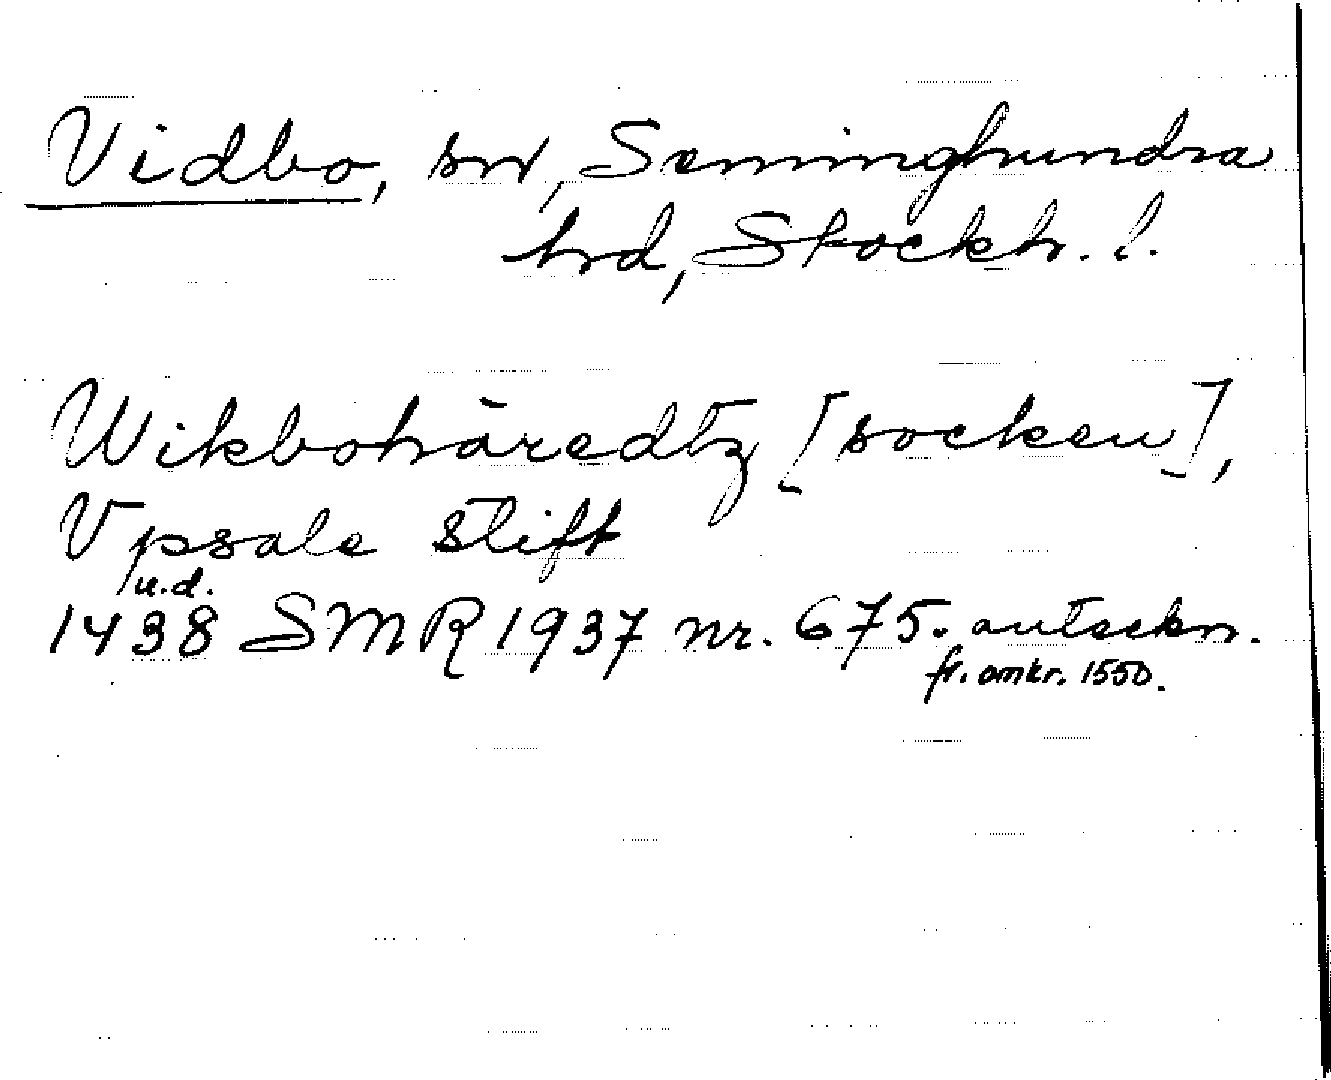 Vidbo, sn, Seminghundra
hrd, Stockh. l.
Wikbohäredtz [socken],
Vpsale stift
u.d.
1438 SMR 1937 nr. 675. anteckn.
fr. omkr. 1550.